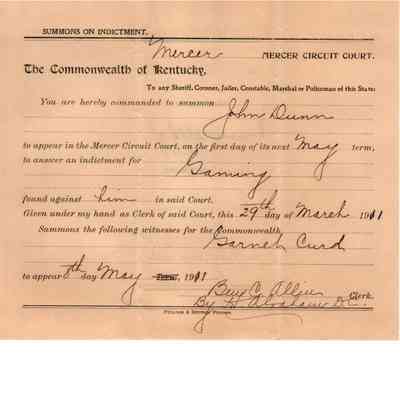 SUMMONS ON INDICTMENT.
Mercer MERCER CIRCUIT COURT.
The Commonwealth of Kentucky,
To any Sheriff, Coroner, Jailer, Constable, Marshal or Policeman of this State:
You are hereby commanded to summon
John Dunn
to appear in the Mercer Circuit Court, on the first day of its next May term,
to answer an indictment for
Gaming
found against him in said Court.
Given under my hand as Clerk of said Court, this 29th day of March 1911
Summons the following witnesses for the Commonwealth
Garnett Curd
to appear 8th day May Term, 1911
Ben C. Allin Clerk
By D. C.